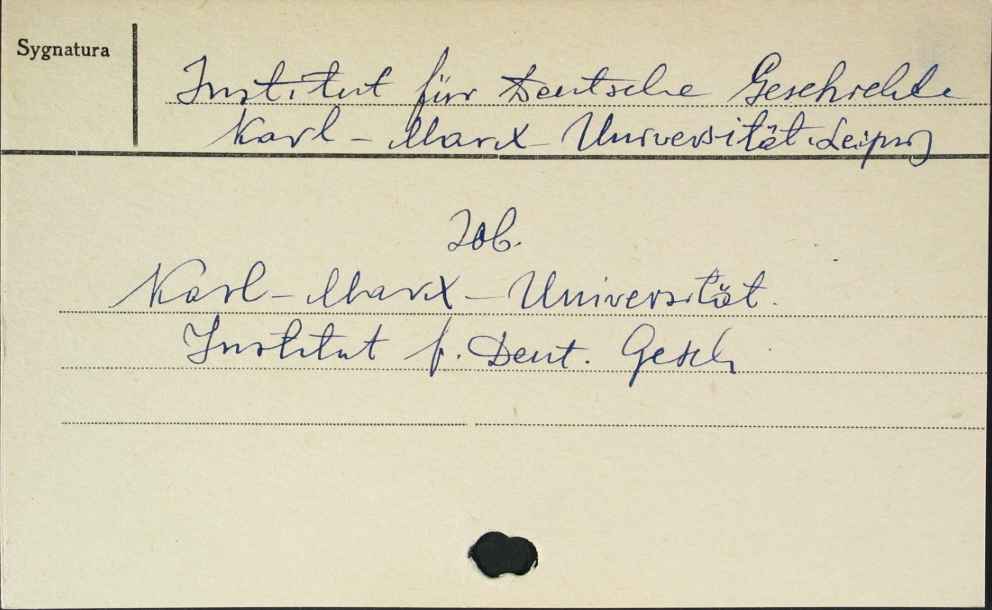 Sygnatura
Institut für Deutsche Geschichte
Karl-Marx Universität Leipzig
Zob.
Karl-Marx-Universität.
Institut f. Deut. Gesch